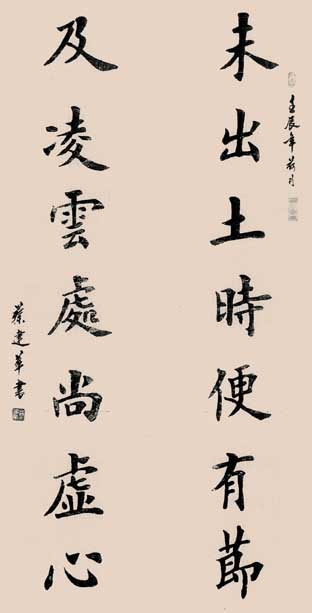 未出土時便有莭
壬辰年荷月
及凌雲處尚虛心
蔡建華書